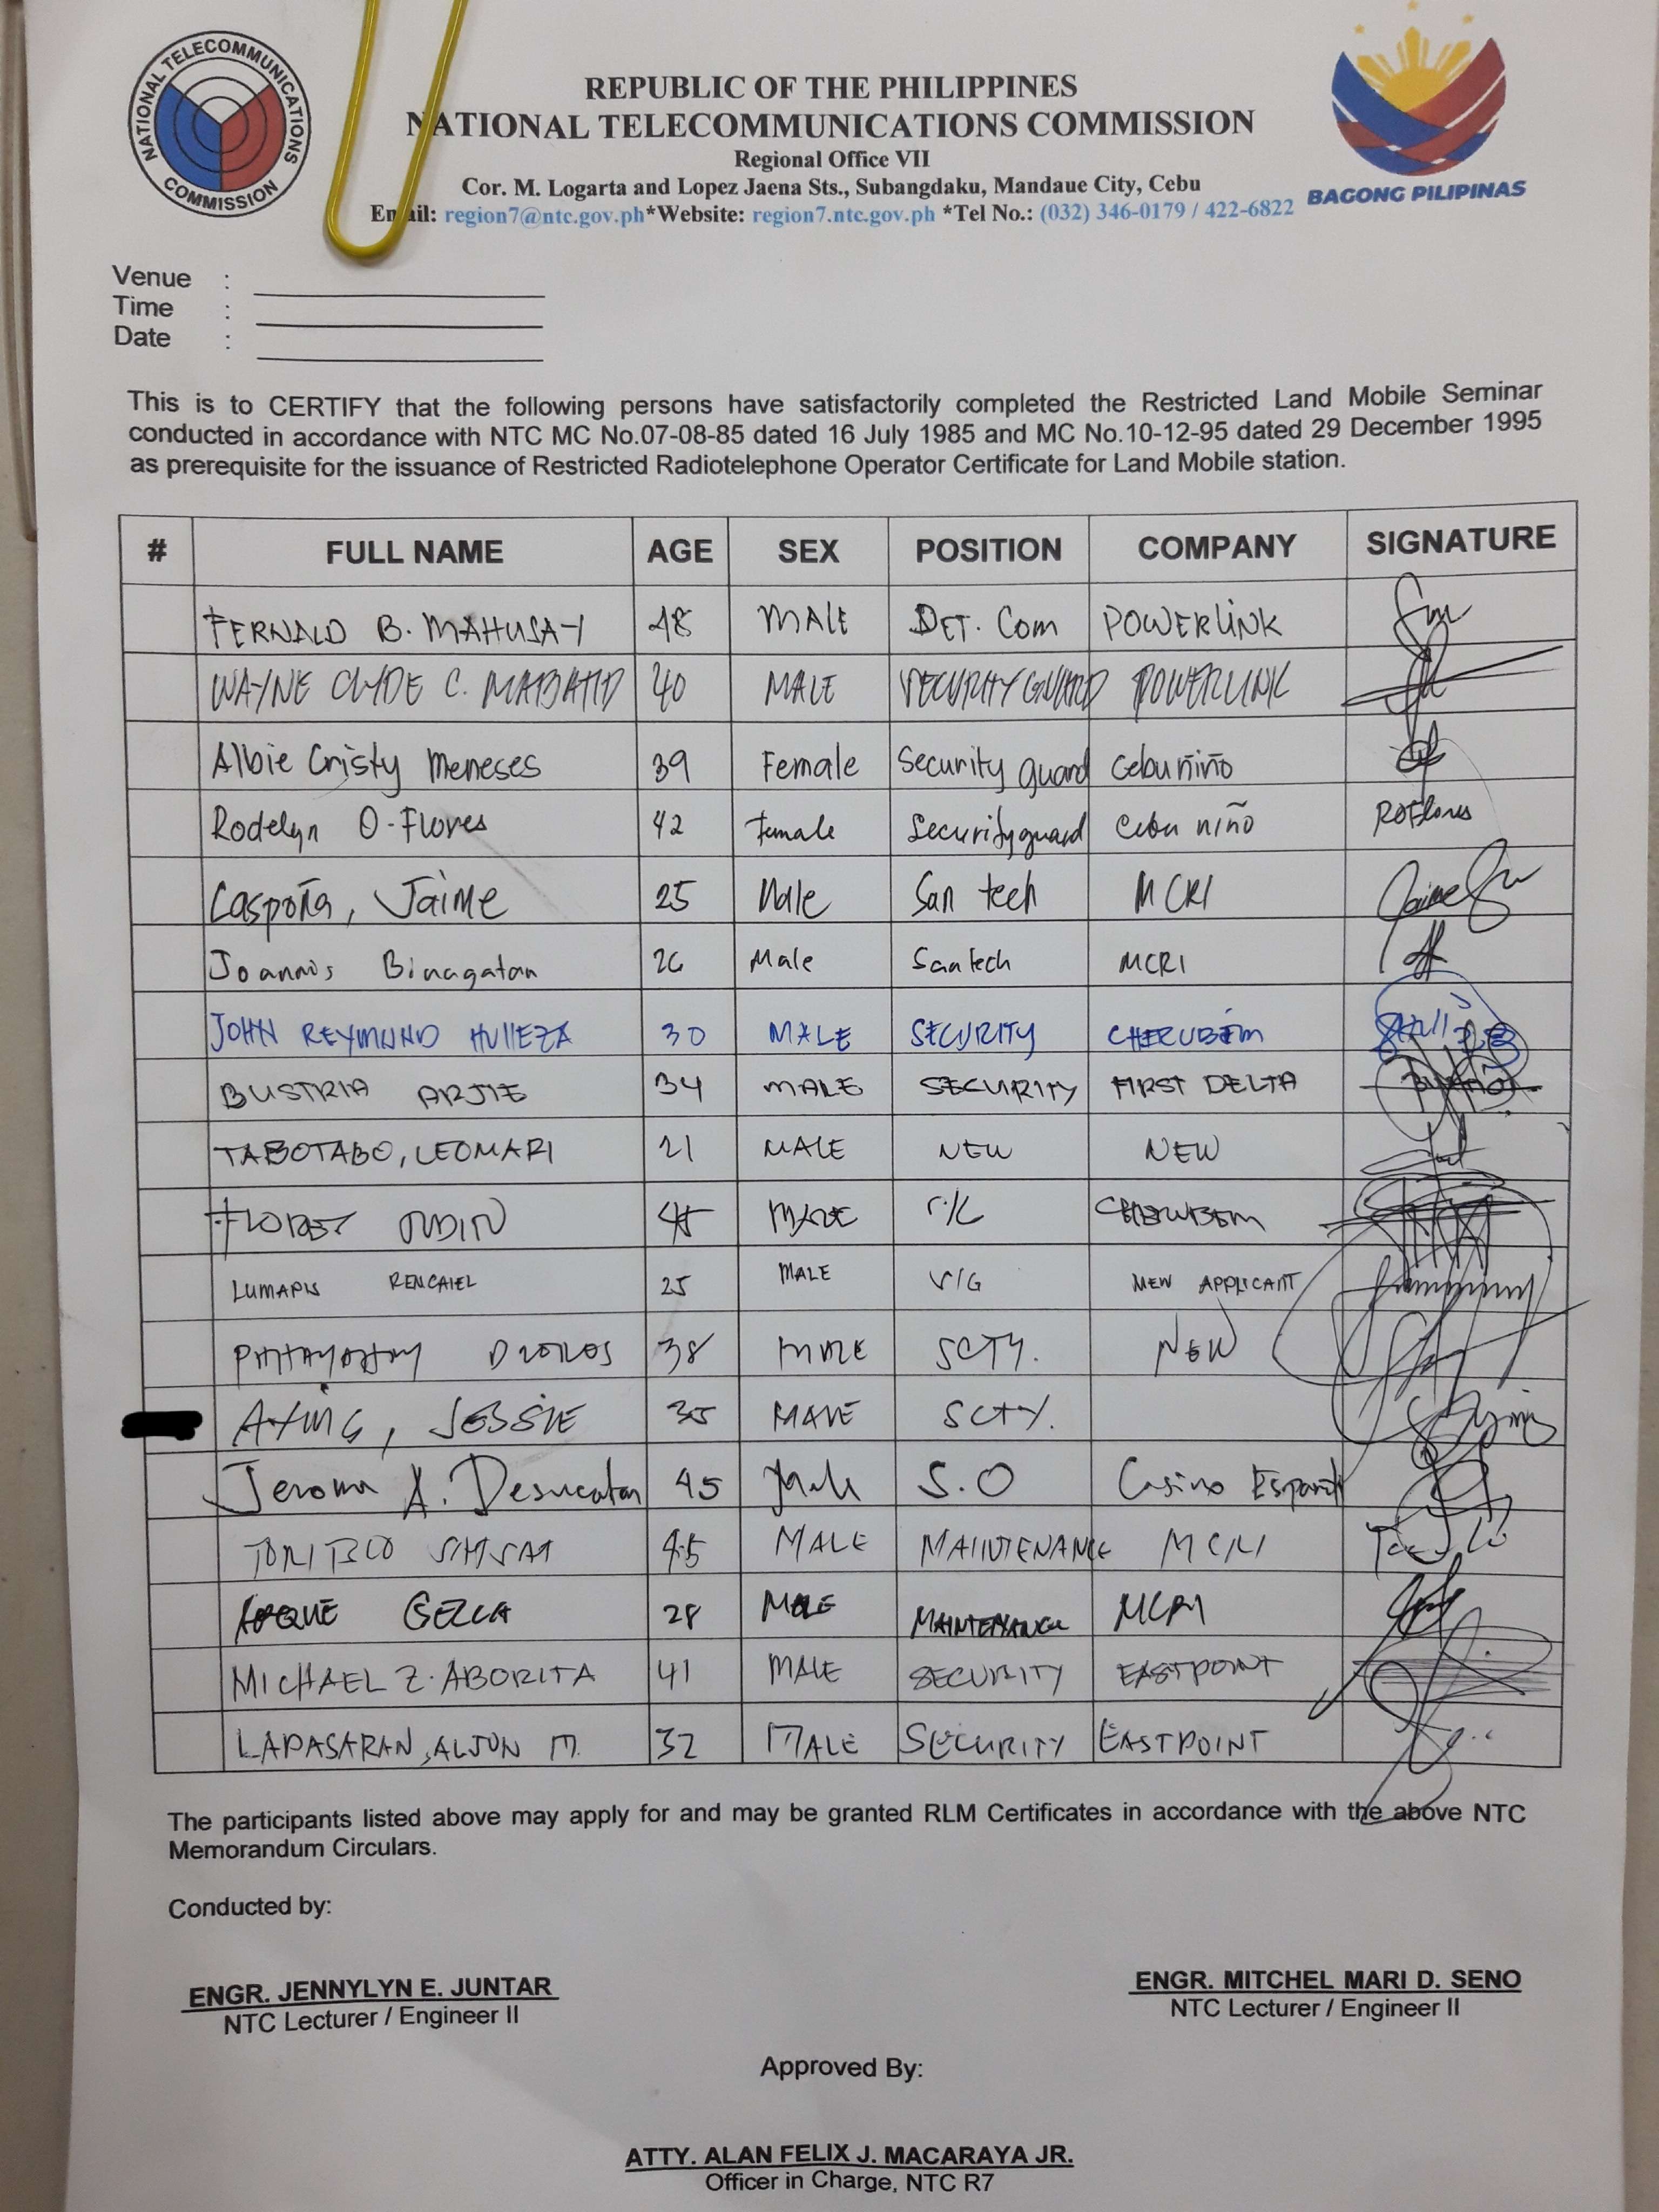 NATIONAL TELECOMMUNICATIONS COMMISSION
REPUBLIC OF THE PHILIPPINES
NATIONAL TELECOMMUNICATIONS COMMISSION
Regional Office VII
Cor. M. Logarta and Lopez Jaena Sts., Subangdaku, Mandaue City, Cebu
Email: region7@ntc.gov.ph*Website: region7.ntc.gov.ph *Tel No.: (032) 346-0179 / 422-6822
BAGONG PILIPINAS
Venue :
Time :
Date :
This is to CERTIFY that the following persons have satisfactorily completed the Restricted Land Mobile Seminar
conducted in accordance with NTC MC No.07-08-85 dated 16 July 1985 and MC No.10-12-95 dated 29 December 1995
as prerequisite for the issuance of Restricted Radiotelephone Operator Certificate for Land Mobile station.
# FULL NAME AGE SEX POSITION COMPANY SIGNATURE
FERNALD B. MAHUSAY 48 MALE DET. Com POWERLINK
WAYNE CLYDE C. MABATID 40 MALE SECURITY GUARD POWERLINK
Albie Cristy Meneses 39 Female Security guard Cebu niño
Rodelyn O. Flores 42 Female Security guard Cebu niño ROFlores
Caspoña, Jaime 25 Male San tech MCRI
Binagatan 26 Male San tech MCRI
JOHN REYMUND HULLEZA 30 MALE SECURITY CHERUBEM
BUSTRIA ARJIE 34 MALE SECURITY FIRST DELTA
TABOTABO, LEOMARI 21 MALE NEW NEW
MALE CHERUBEM
LUMAPIS 25 MALE S/G NEW APPLICANT
38 MALE SCTY. NEW
AYING, JESSIE 35 MALE SCTY.
Jerome A. Desucatan 45 Male S.O Casino Español
45 MALE MAINTENANCE MCRI
ROQUE 28 MALE MAINTENANCE MCRI
MICHAEL Z. ABORITA 41 MALE SECURITY EASTPOINT
LAPASARAN, ALJUN M. 32 MALE SECURITY EASTPOINT
The participants listed above may apply for and may be granted RLM Certificates in accordance with the above NTC
Memorandum Circulars.
Conducted by:
ENGR. JENNYLYN E. JUNTAR
NTC Lecturer / Engineer II
ENGR. MITCHEL MARI D. SENO
NTC Lecturer / Engineer II
Approved By:
ATTY. ALAN FELIX J. MACARAYA JR.
Officer in Charge, NTC R7